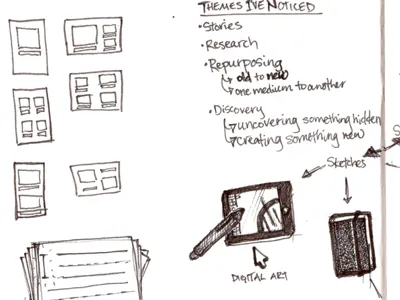 THEMES I'VE NOTICED
• Stories
• Research
• Repurposing
↳ old to new
↳ one medium to another
• Discovery
↳ uncovering something hidden
↳ creating something new
Sketches
DIGITAL ART